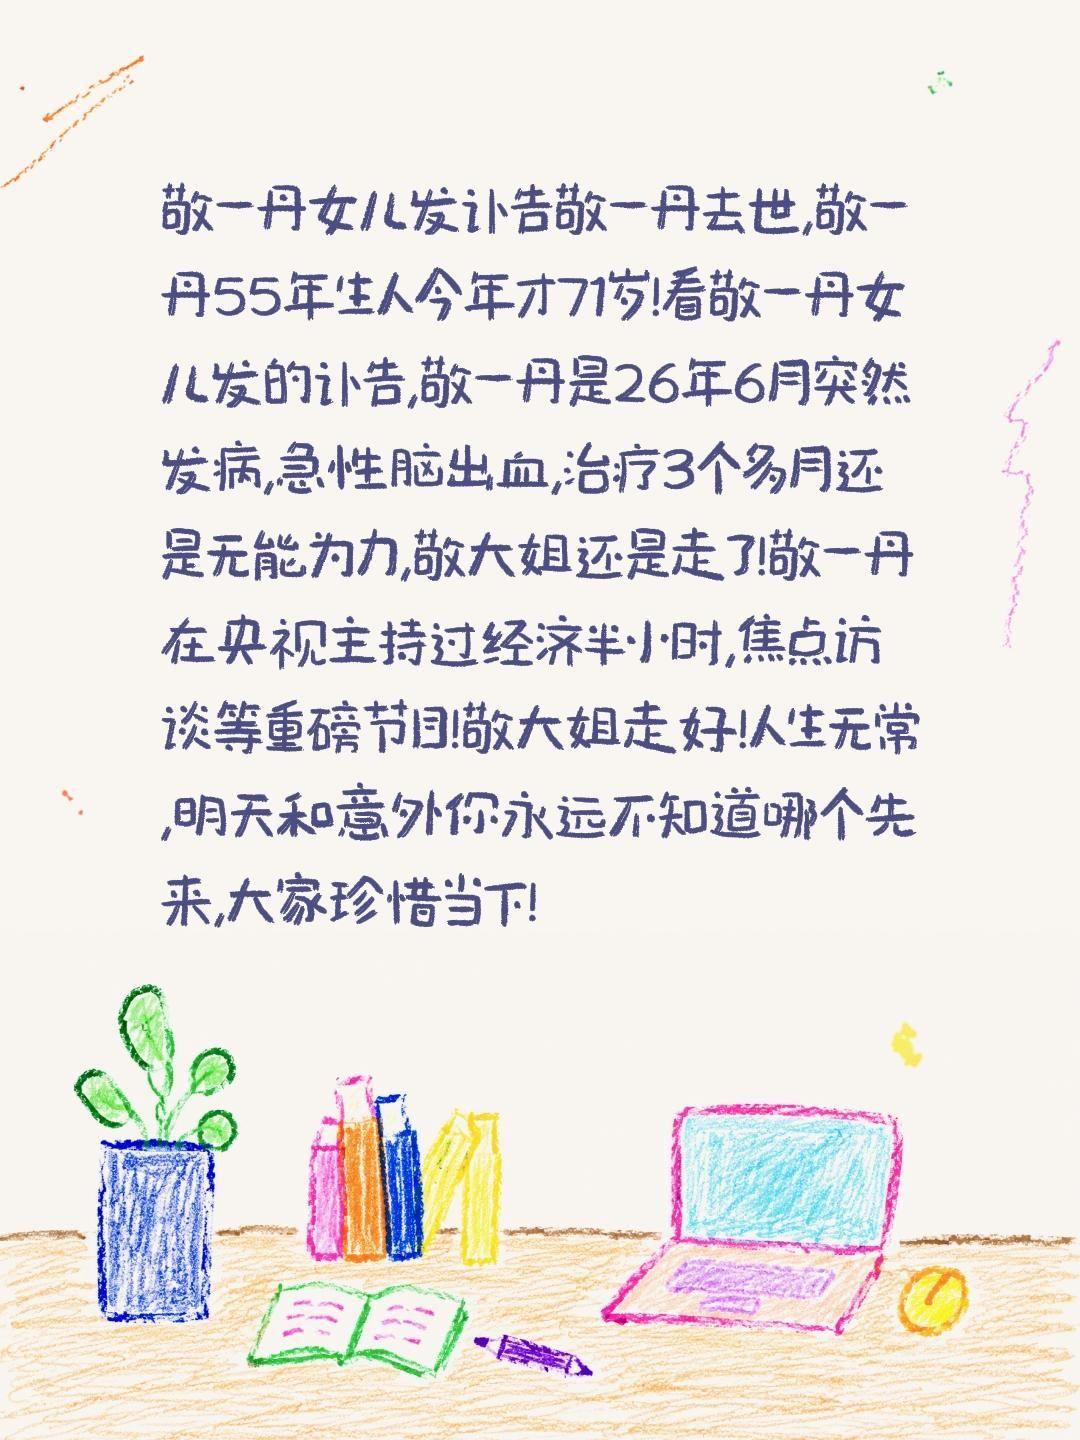 敬一丹女儿发讣告敬一丹去世,敬一
丹55年生人今年才71岁!看敬一丹女
儿发的讣告,敬一丹是26年6月突然
发病,急性脑出血,治疗3个多月还
是无能为力,敬大姐还是走了!敬一丹
在央视主持过经济半小时,焦点访
谈等重磅节目!敬大姐走好!人生无常
,明天和意外你永远不知道哪个先
来,大家珍惜当下!